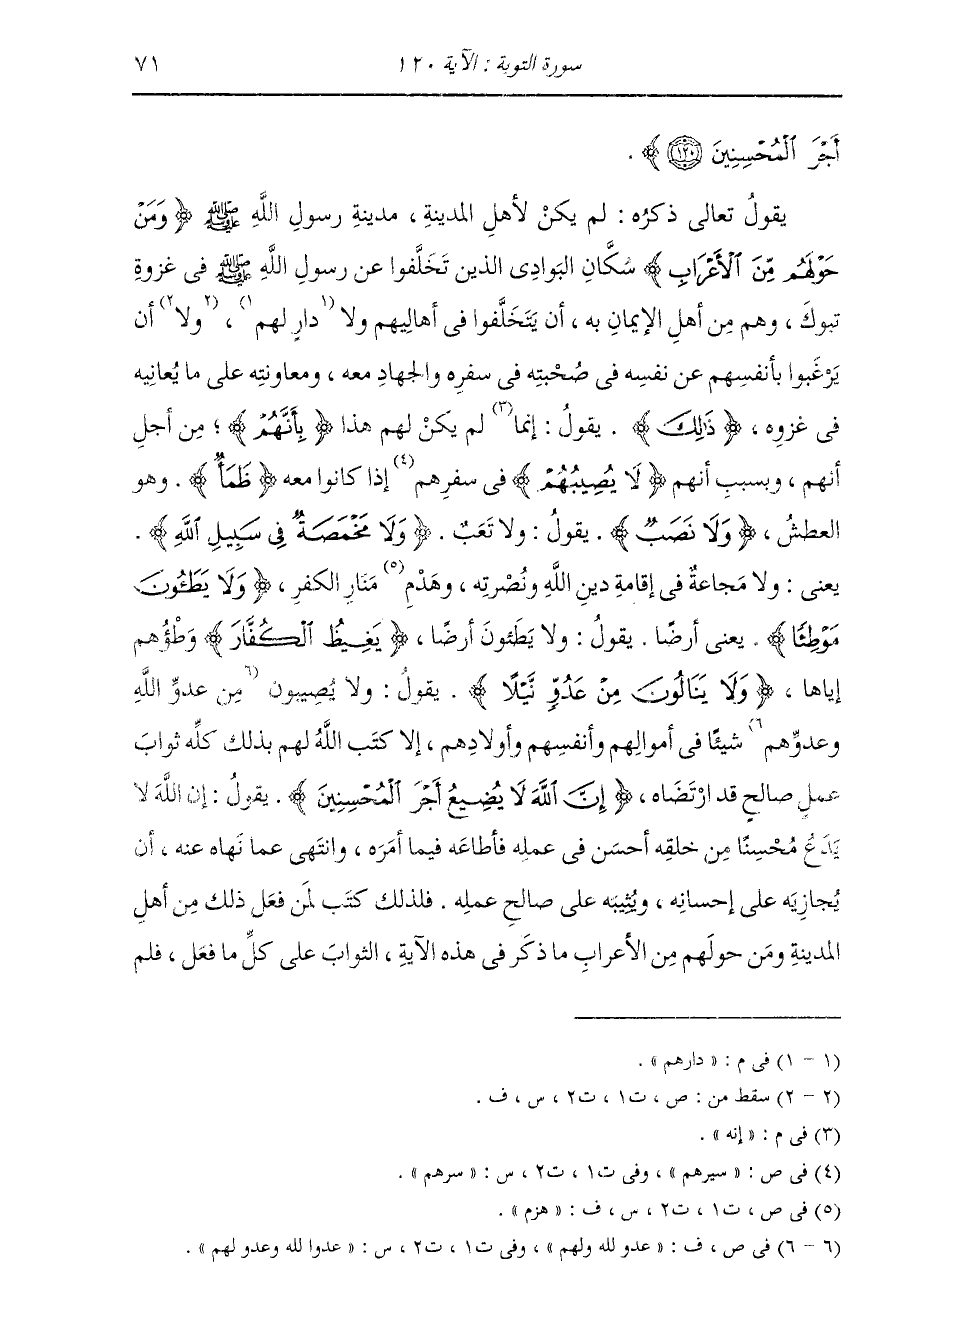 سورة التوبة : الآية ١٢٠ ٧١
أَجْرَ ٱلْمُحْسِنِينَ ﴿١٢٠﴾ ﴾ .
يقولُ تعالى ذكرُه : لم يكنْ لأهلِ المدينةِ ، مدينةِ رسولِ اللَّهِ ﷺ ﴿ وَمَنْ
حَوْلَهُم مِّنَ ٱلْأَعْرَابِ ﴾ سُكَّانِ البَوادِى الذين تَخَلَّفوا عن رسولِ اللَّهِ ﷺ فى غزوةِ
تبوكَ ، وهم مِن أهلِ الإيمانِ به ، أن يَتَخَلَّفوا فى أهالِيهم ولا (١ دارٍ لهم ١) ، (٢ ولا ٢) أن
يَرْغَبوا بأنفسِهم عن نفسِه فى صُحْبتِه فى سفرِه والجهادِ معه ، ومعاونتِه على ما يُعانِيه
فى غزوِه ، ﴿ ذَٰلِكَ ﴾ . يقولُ : إنما(٣) لم يكنْ لهم هذا ﴿ بِأَنَّهُمْ ﴾ ؛ مِن أجلِ
أنهم ، وبسببِ أنهم ﴿ لَا يُصِيبُهُمْ ﴾ فى سفرِهم(٤) إذا كانوا معه ﴿ ظَمَأٌ ﴾ . وهو
العطشُ ، ﴿ وَلَا نَصَبٌ ﴾ . يقولُ : ولا تَعَبٌ . ﴿ وَلَا مَخْمَصَةٌ فِى سَبِيلِ ٱللَّهِ ﴾ .
يعنى : ولا مَجاعةٌ فى إقامةِ دينِ اللَّهِ ونُصْرتِه ، وهَدْمِ(٥) مَنَارِ الكفرِ ، ﴿ وَلَا يَطَئُونَ
مَوْطِئًا ﴾ . يعنى أرضًا . يقولُ : ولا يَطَئونَ أرضًا ، ﴿ يَغِيظُ ٱلْكُفَّارَ ﴾ وَطْؤُهم
إياها ، ﴿ وَلَا يَنَالُونَ مِنْ عَدُوٍّ نَّيْلًا ﴾ . يقولُ : ولا يُصِيبون (٦ مِن عدوِّ اللَّهِ
وعدوِّهم ٦) شيئًا فى أموالِهم وأنفسِهم وأولادِهم ، إلا كتَب اللَّهُ لهم بذلك كلِّه ثوابَ
عملٍ صالحٍ قد ارْتَضَاه ، ﴿ إِنَّ ٱللَّهَ لَا يُضِيعُ أَجْرَ ٱلْمُحْسِنِينَ ﴾ . يقولُ : إن اللَّهَ لا
يَدَعُ مُحْسِنًا مِن خلقِه أحسَن فى عملِه فأطاعَه فيما أمَرَه ، وانتَهى عما نَهاه عنه ، أن
يُجازِيَه على إحسانِه ، ويُثِيبَه على صالحِ عملِه . فلذلك كتَب لمَن فعَل ذلك مِن أهلِ
المدينةِ ومَن حولَهم مِن الأعرابِ ما ذكَر فى هذه الآيةِ ، الثوابَ على كلِّ ما فعَل ، فلم
(١ - ١) فى م : « دارهم » .
(٢ - ٢) سقط من : ص ، ت١ ، ت٢ ، س ، ف .
(٣) فى م : « إنه » .
(٤) فى ص : « سيرهم » ، وفى ت١ ، ت٢ ، س : « سرهم » .
(٥) فى ص ، ت١ ، ت٢ ، س ، ف : « هزم » .
(٦ - ٦) فى ص ، ف : « عدو لله ولهم » ، وفى ت١ ، ت٢ ، س : « عدوا لله وعدو لهم » .